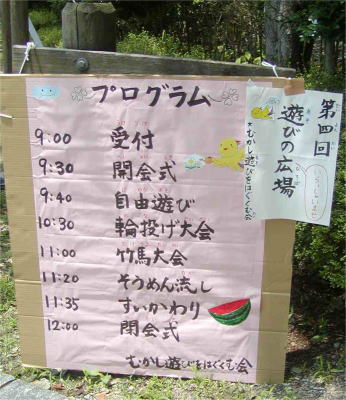 プログラム
9:00 受付
9:30 開会式
9:40 自由遊び
10:30 輪投げ大会
11:00 竹馬大会
11:20 そうめん流し
11:35 すいかわり
12:00 閉会式
むかし遊びをはぐくむ会
第四回
遊びの広場
*むかし遊びをはぐくむ会